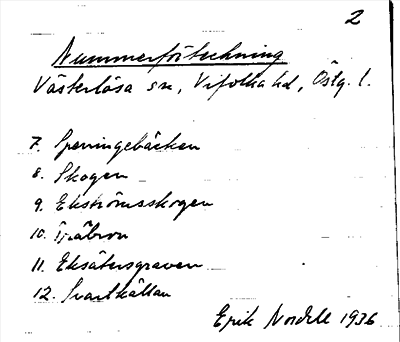 2
Nummerförteckning
Västerlösa sn, Vifolka hd, Östg. l.
7. Sperringebäcken
8. Skogen
9. Ekströmsskogen
10.
11. Eksätersgraven
12. Svartkällan
Erik Nordell 1936